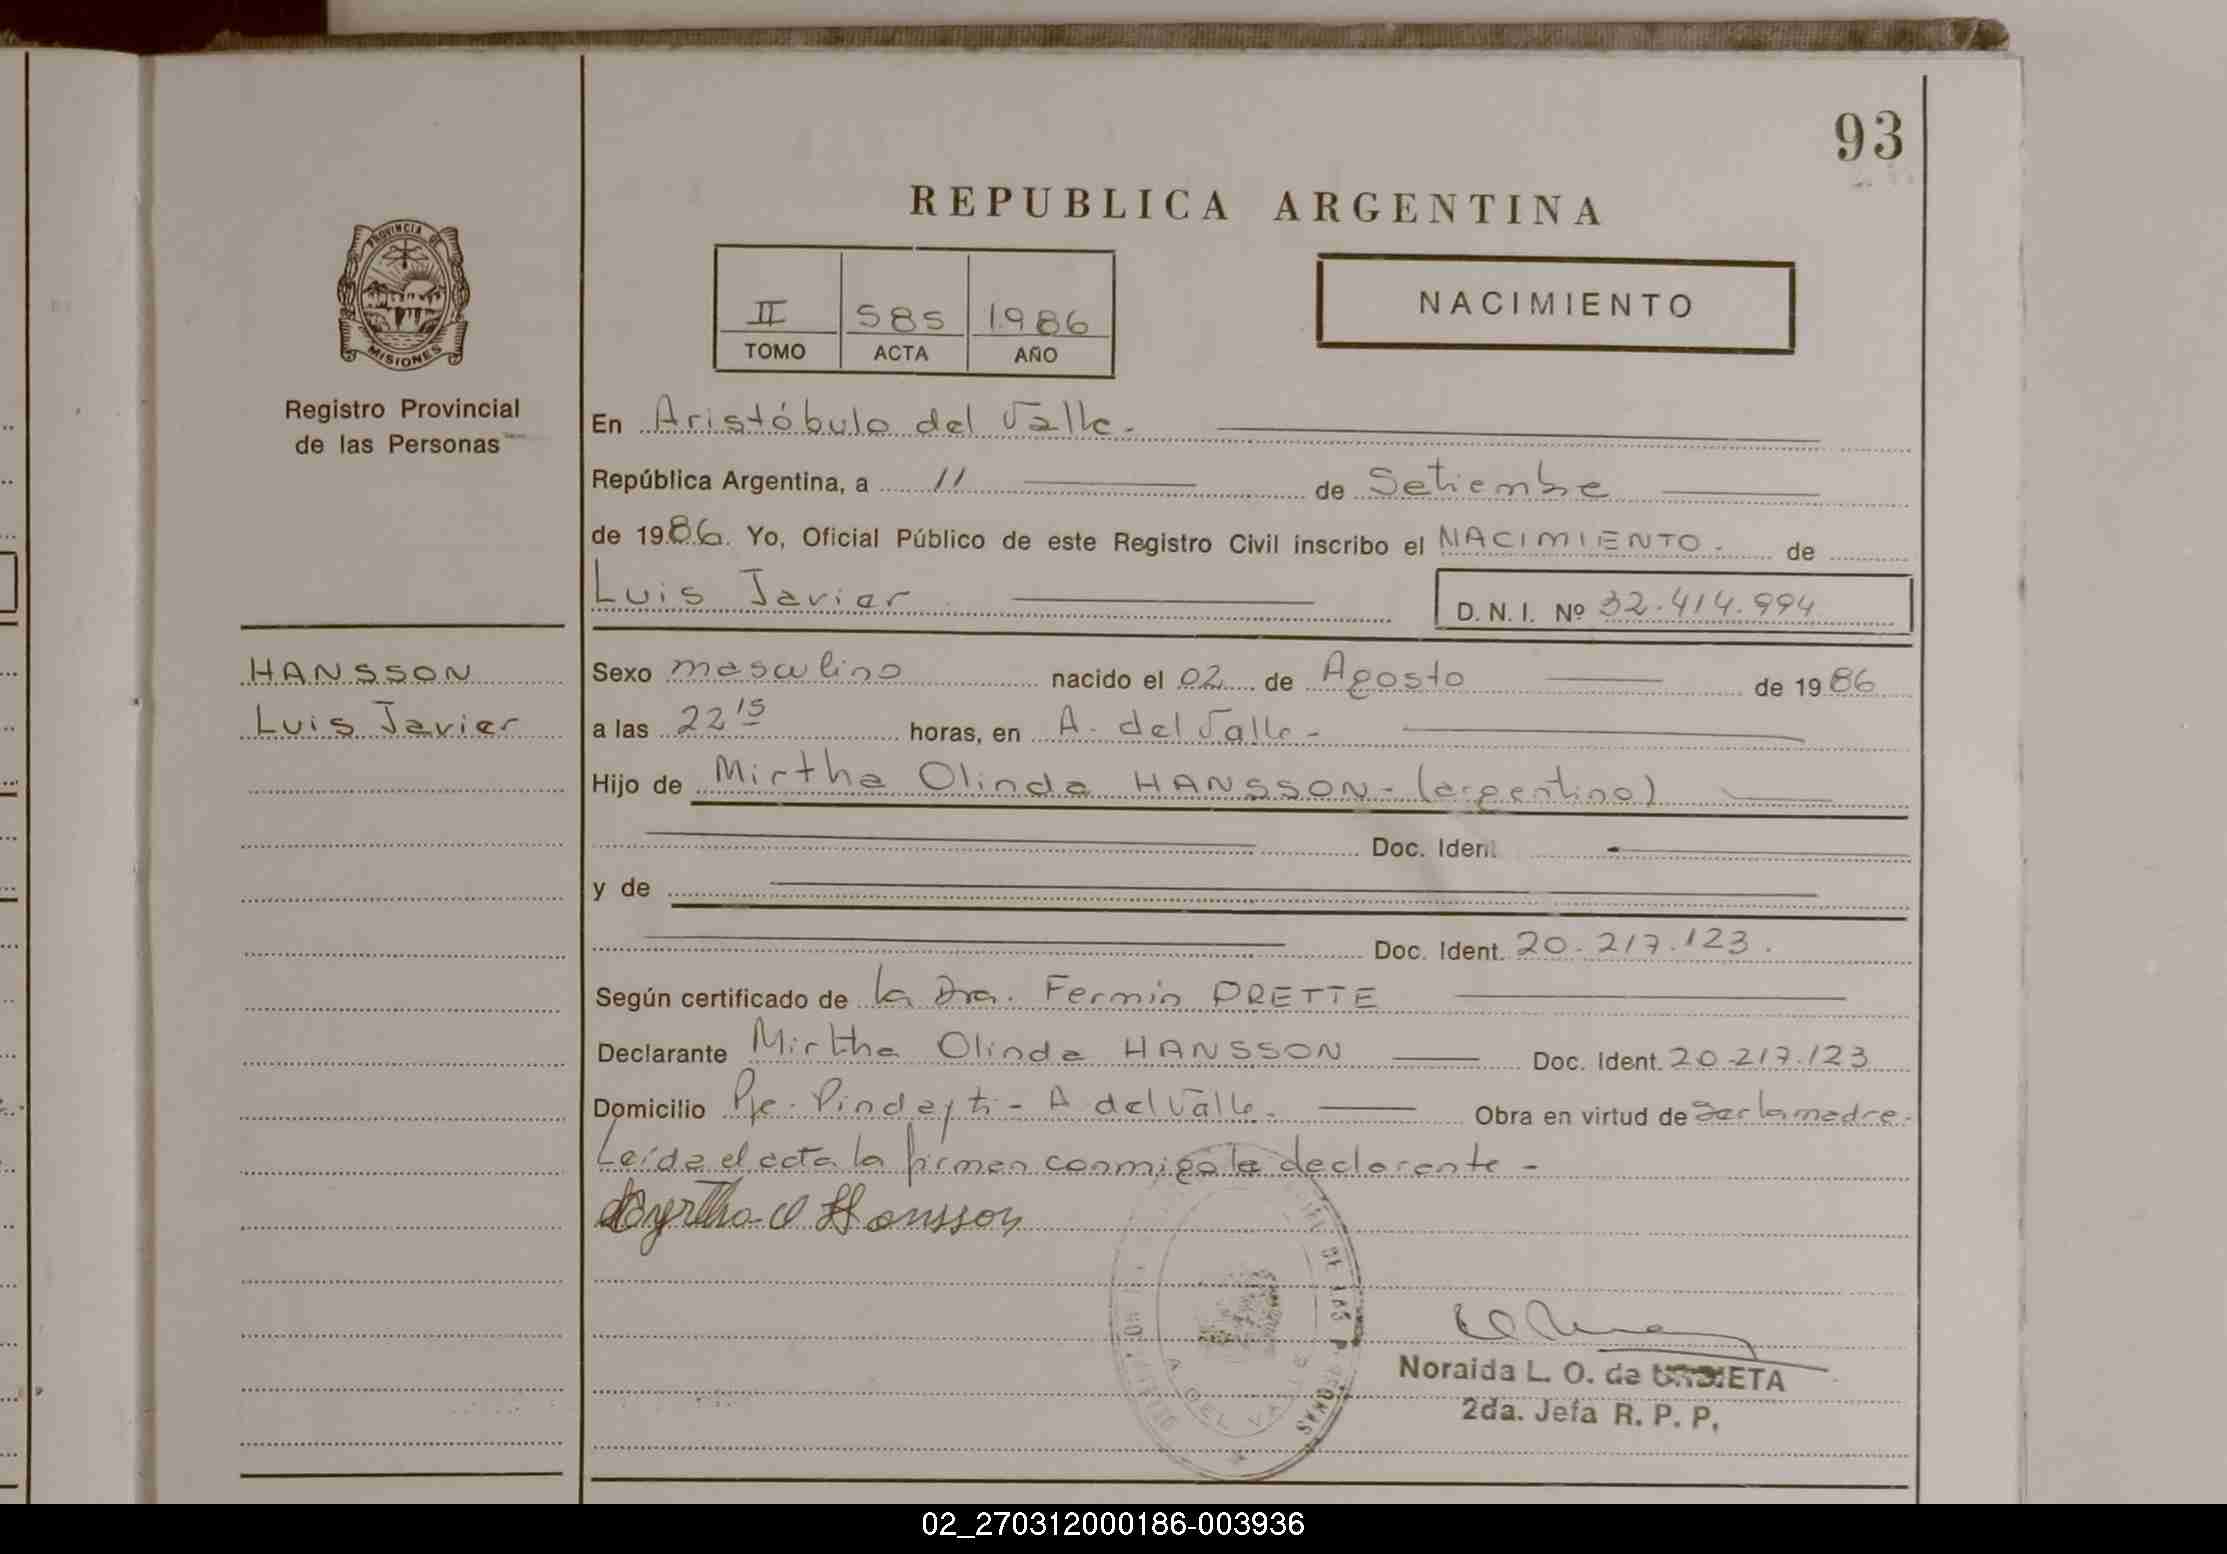 93
REPUBLICA ARGENTINA
PROVINCIA DE
MISIONES
II 585 1986
TOMO ACTA AÑO
NACIMIENTO
Registro Provincial
de las Personas
En Aristóbulo del Valle.-
República Argentina, a 11 de Setiembre
de 1986. Yo, Oficial Público de este Registro Civil inscribo el NACIMIENTO.- de
Luis Javier D. N. I. Nº 32.414.994
HANSSON
Luis Javier
Sexo masculino nacido el 02 de Agosto de 1986
a las 22 15 horas, en A. del Valle-
Hijo de Mirtha Olinda HANSSON- (argentina)
Doc. Ident.
y de
Doc. Ident. 20.217.123.
Según certificado de la Dra. Fermin PRETTE
Declarante Mirtha Olinda HANSSON Doc. Ident. 20.217.123
Domicilio Pje. Pindayti- A del Valle. Obra en virtud de ser la madre.-
Leída el acta la firman conmigo la declarante-
Myrtha O Hansson
DE LAS P
A DEL VALLE
Noraida L. O. de
2da. Jefa R. P. P.
02_270312000186-003936